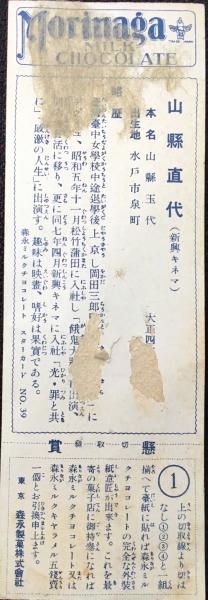 TRADE MARK
Morinaga
MILK
CHOCOLATE
山縣直代（新興キネマ）
本名 山縣玉代
大正四
出生地 水戸市泉町
略歴
臺中女學校中途退學後上京し岡田三郎
に
昭和五年十一月松竹蒲田に入社し「餓鬼大
出演
活に移り、更に同七年四月新興キネマに入社「光・罪と共
に」「感激の人生」に出演す。趣味は映畫、嗜好は果實である。
森永ミルクチヨコレート スターカード NO. 39
懸賞
切取線
①
上の切取線より切は
なし①②③④と一組
揃へて臺紙に貼れば森永ミル
クチヨコレートの完全な外装
紙意匠が出來ます。これを最
寄の菓子店に御持參になれば
森永ミルクチヨコレート又は
森永ミルクキヤラメル五錢賣
一個とお引換申上ます。
東京 森永製菓株式會社